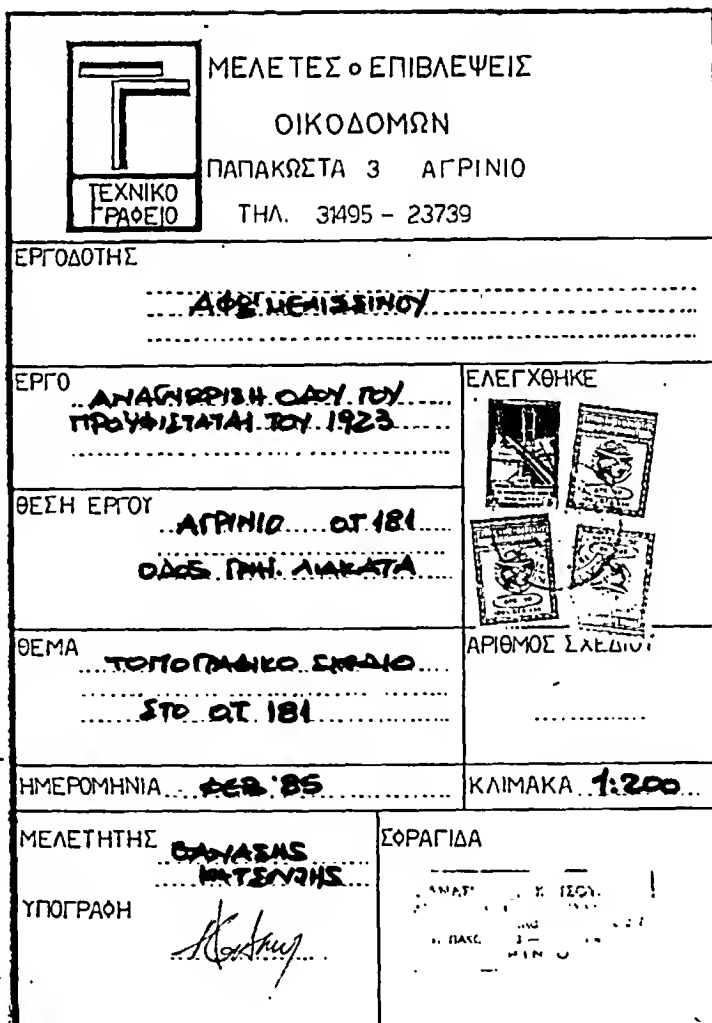 ΜΕΛΕΤΕΣ ο ΕΠΙΒΛΕΨΕΙΣ
ΟΙΚΟΔΟΜΩΝ
ΠΑΠΑΚΩΣΤΑ 3 ΑΓΡΙΝΙΟ
ΤΗΛ. 31495 - 23739
ΤΕΧΝΙΚΟ
ΓΡΑΦΕΙΟ
ΕΡΓΟΔΟΤΗΣ
ΑΦΟΙ ΜΕΛΙΣΣΙΝΟΥ
ΕΡΓΟ
ΑΝΑΓΝΩΡΙΣΗ ΟΔΟΥ ΤΟΥ
ΠΡΟΥΦΙΣΤΑΤΑΙ ΤΟΥ 1923
ΕΛΕΓΧΘΗΚΕ
ΘΕΣΗ ΕΡΓΟΥ
ΑΓΡΙΝΙΟ Ο.Τ 181
ΟΔΟΣ ΓΡΗΓ. ΛΙΑΚΑΤΑ
ΘΕΜΑ
ΤΟΠΟΓΡΑΦΙΚΟ ΣΧΕΔΙΟ
ΣΤΟ Ο.Τ. 181
ΑΡΙΘΜΟΣ ΣΧΕΔΙΟΥ
ΗΜΕΡΟΜΗΝΙΑ ΦΕΒ. '85
ΚΛΙΜΑΚΑ 1:200
ΜΕΛΕΤΗΤΗΣ ΘΑΝΑΣΗΣ
ΥΠΟΓΡΑΦΗ
ΣΦΡΑΓΙΔΑ